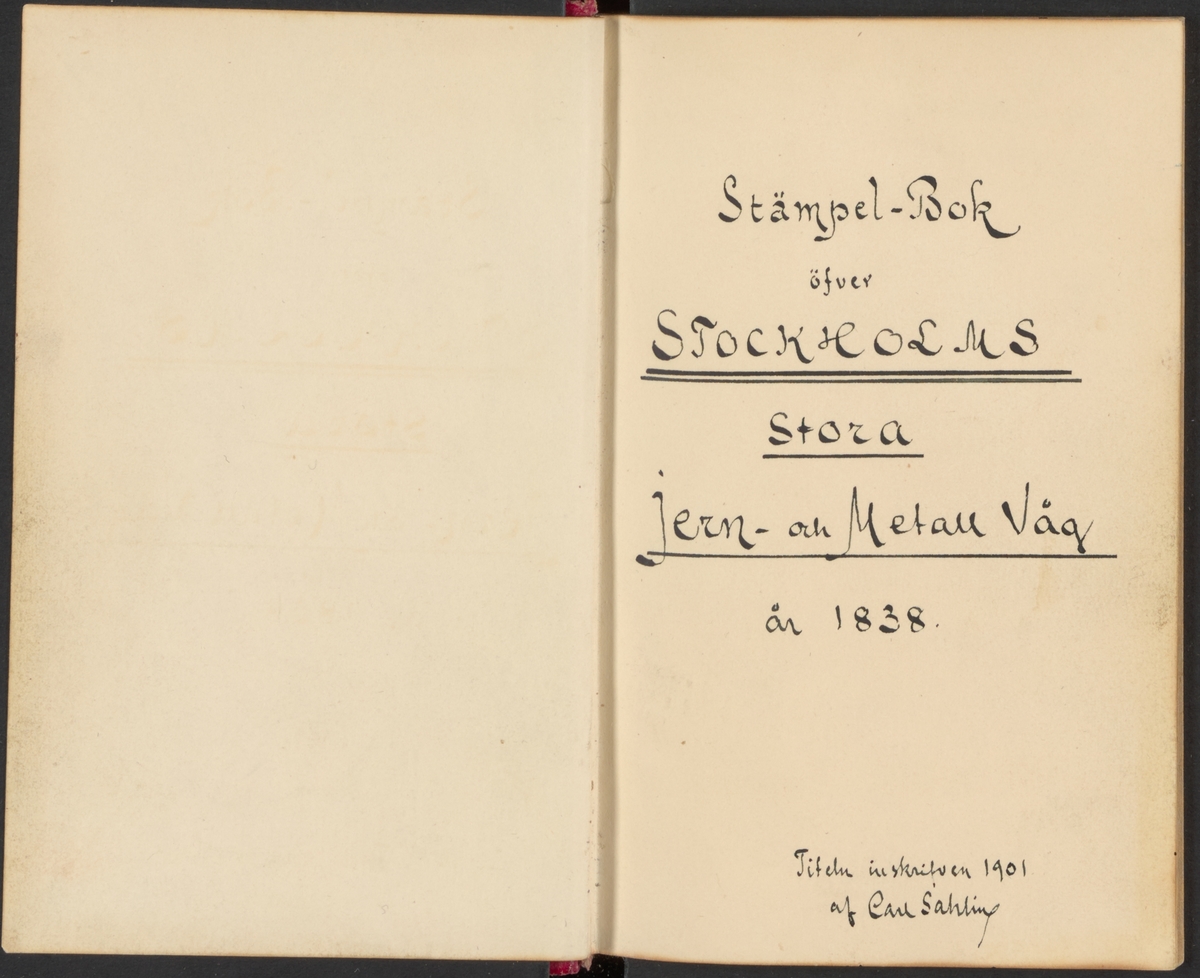 Stämpel-Bok
öfver
STOCKHOLMS
Stora
Jern- och Metall Våg
år 1838.
Titeln inskrifven 1901
af Carl Sahlin